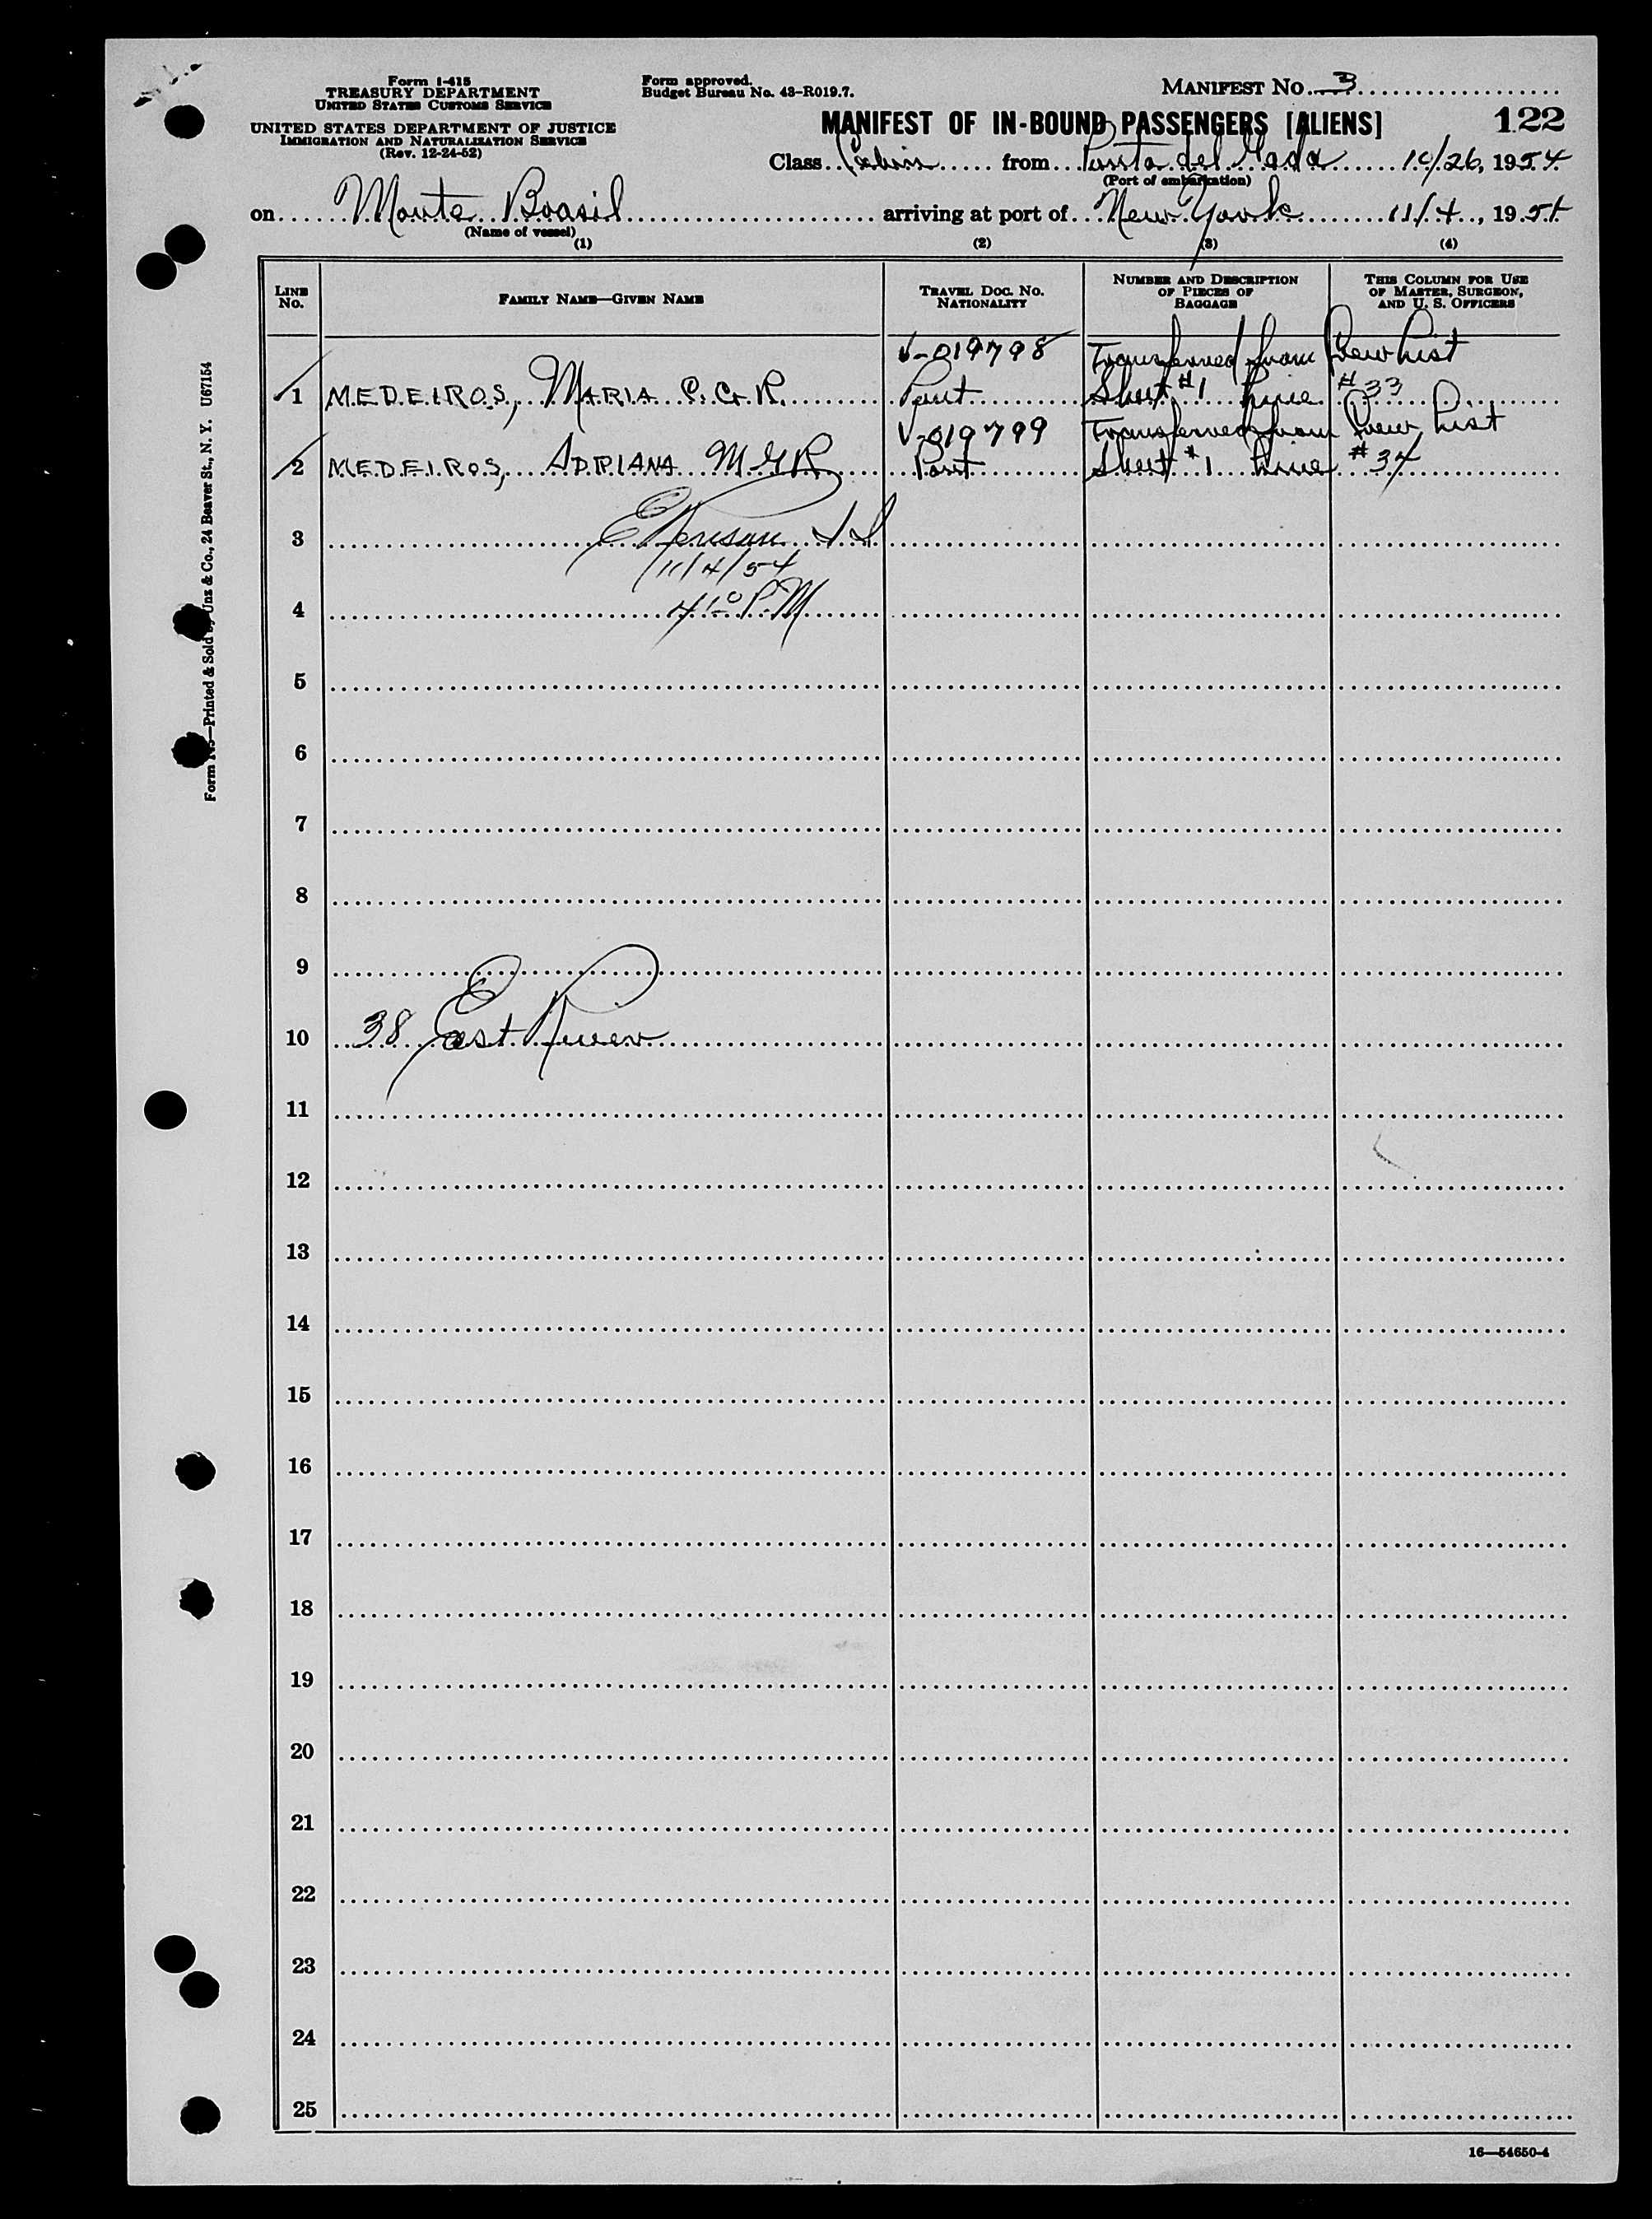 Form I-415
TREASURY DEPARTMENT
UNITED STATES CUSTOMS SERVICE
UNITED STATES DEPARTMENT OF JUSTICE
IMMIGRATION AND NATURALIZATION SERVICE
(Rev. 12-24-52)
Form approved.
Budget Bureau No. 43-R019.7.
MANIFEST NO. 3
MANIFEST OF IN-BOUND PASSENGERS [ALIENS] 122
Class Cabin from Punta del Gada 10/26, 1954
(Port of embarkation)
on Monte Brasil arriving at port of New York 11/4, 1954
(Name of vessel)
(1) (2) (3) (4)
LINE NO. FAMILY NAME—GIVEN NAME TRAVEL DOC. NO. NATIONALITY NUMBER AND DESCRIPTION OF PIECES OF BAGGAGE THIS COLUMN FOR USE OF MASTER, SURGEON, AND U. S. OFFICERS
V-019798 Transferred from Crew List
1 MEDEIROS, MARIA C. G. R. Port Sheet #1 Line #33
V-019799 Transferred from Crew List
2 MEDEIROS, ADRIANA M G R Port Sheet #1 Line #34
3
11/4/54
4 P.M
5
6
7
8
9
10 38 East River
11
12
13
14
15
16
17
18
19
20
21
22
23
24
25
16—54650-4
Form —Printed & Sold by Unz & Co., 24 Beaver St., N. Y. U67154